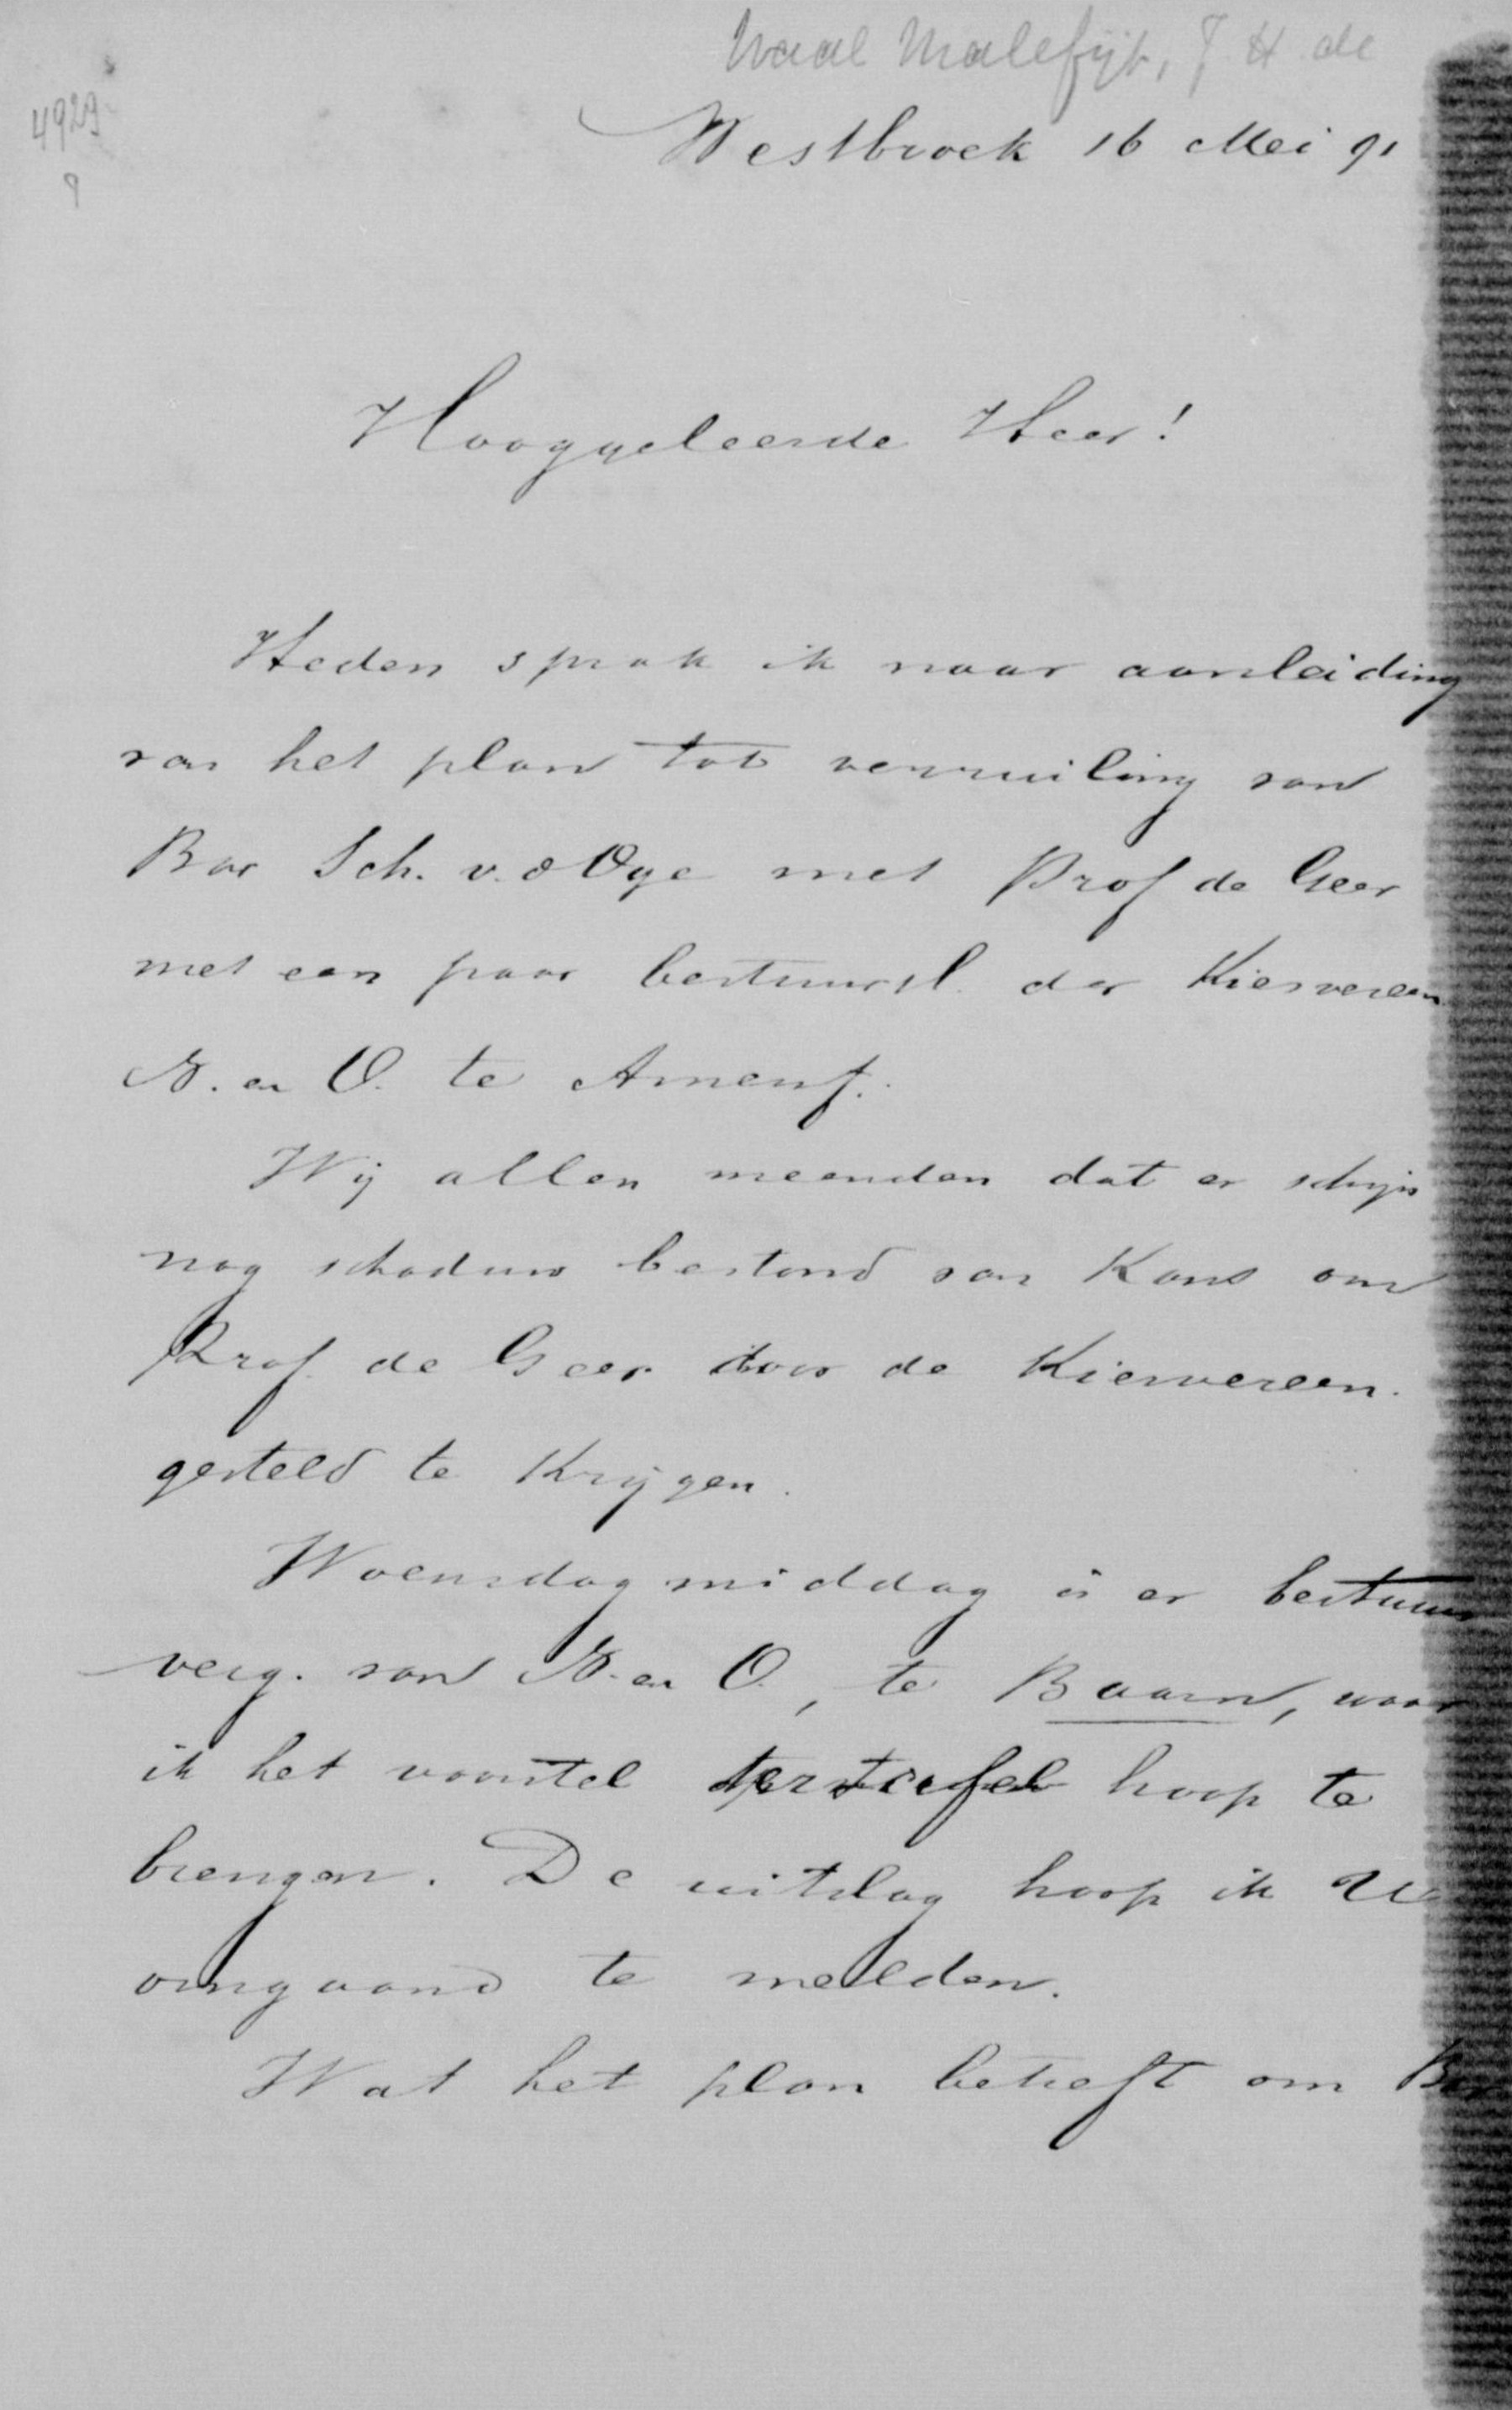 Waal Malefijt, J H de
4929
9
Westbroek 16 Mei 91
Hooggeleerde Heer!
Heden sprak ik naar aanleiding
van het plan tot verruiling van
Bar Sch. v. d Oye met Prof de Geer
met een paar bestuursl. der Kiesvereen
N. en O. te Amersf.
Wij allen meenden dat er schijn
nog schaduw bestond van Kans om
Prof. de Geer door de Kiesvereen.
gesteld te Krijgen.
Woensdag middag is er bestuurs
verg. van N. en O., te Baarn, waar
ik het voorstel ter tafel hoop te
brengen. De uitslag hoop ik U
omgaand te melden.
Wat het plan betreft om Bar